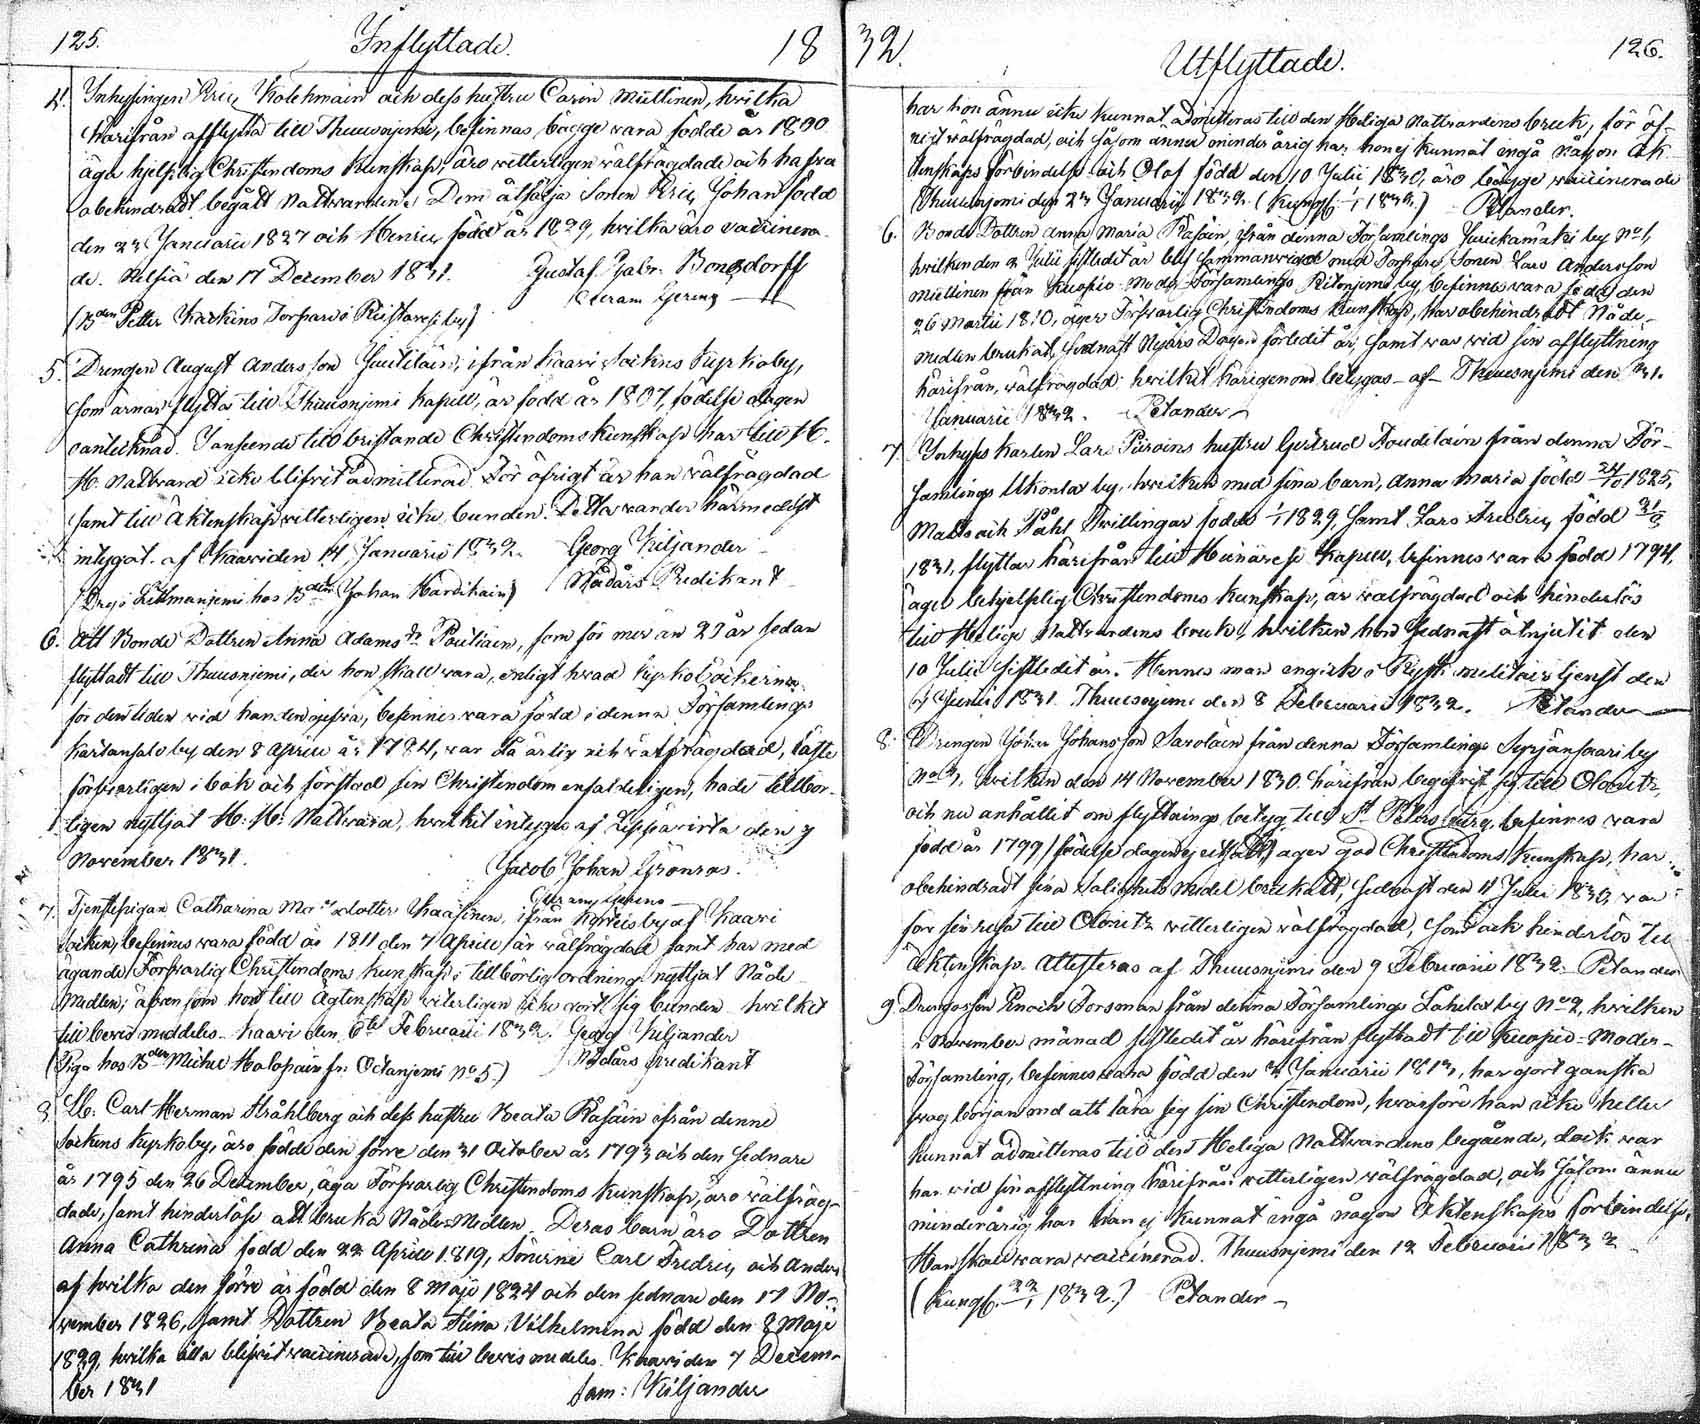 125. Inflyttade. 18
4. Inhysingen Eric Kolehmain och dess hustru Carin Miettinen, hvilka
härifrån afflytta till Thuusnjemi, befinnas bägge vara födde år 1800
äga hjelplig Christendoms Kunskap, äro witterligen wälfrägdade och hafva
obehindradt begått Nattvarden. Dem åtfölja Sonen Eric Johan född
den 23 Januarii 1827 och Henric född år 1829, hvilka äro vaccinera-
de. Nilsiä den 17 December 1831. Gustaf Gabr. Bonsdorff
(Bden Petter Karkins Torpare i Ristavesi by)
5. Drengen August Andersson Juutilain, ifrån Kaavi Sockns Kyrkoby,
som ärnar flytta till Thuusnjemi Kapell, är född år 1807, födelse dagen
oantecknad. I anseende till bristande Christendomskunskap har till H.
H. Nattvard icke blifvit admitterad. För öfrigt är han wälfrägdad
samt till Äktenskap witterligen icke bunden. Detta varder härmedelst
intygat. af Kaavi den 14 Januarii 1832. Georg Kiljander
(Dreng i Littmanjemi hos Bden Johan Hardikain) Nådårs Predikant
6. Att Bonde Dottren Anna Adams Dr Pautiain, som för mer än 23 år sedan
flyttadt till Thuusnjemi, der hon skall vara, enligt hvad Kyrkoböckerna
för den tiden vid handen gifva, befinnes vara född i denna Församlings
Kärtansalo by den 8 Aprill år 1784, var då ärlig och välfrägdad, läste
försvarligen i bok och förstod sin Christendom enfaldeligen, hade tillbör-
ligen nyttjat H. H. Nattvard, hvilket intygas af Leppävirta den 7
November 1831. Jacob Johan Grönros.
7. Tjenstepigan Catharina Mats dotter Kaasinen, ifrån by af Kaavi
Socken, befinnes vara född år 1811 den 7 Aprill är välfrägdad samt har med
ägande Försvarlig Christendoms kunskap i tillbörlig ordning nyttjat Nåde-
medlen, äfven som hon till Ägtenskap viterligen icke gort sig bunden hvilket
till bevis meddeles. Kaavi den 6te Februarii 1832. Georg Kiljander
(Piga hos Bden Michel Holopain fr. Octanjemi No 5.) Nådårs Predikant
8. Carl Herman Stråhlberg och dess hustru Beata Räsäin ifrån denne
Sockens Kyrkoby, äro födde den förre den 31 October år 1793 och den sednare
år 1795 den 26 December, äga Försvarlig Christendoms kunskap, äro wälfräg-
dade, samt hinderlöse att bruka Nådes Medlen. Deras barn äro Dottren
Anna Cathrina född den 22 Aprill 1819, Sönerne Carl Fredric och Anders
af hvilka den förre är född den 8 Maji 1824 och den sednare den 17 No-
vember 1826, samt Dottren Beata Stina Vilhelmina född den 8 Maji
1829, hvilka alla blifvit vaccinerade, som till bevis medeles. Kaavi den 7 Decem-
ber 1831 Sam: Kiljander
32. Utflyttade. 126.
har hon ännu icke kunnat admitteras till den Heliga Nattvardens bruk, för öf-
rigt wälfrägdad, och såsom ännu minderårig har hon ej kunnat ingå någon Äk-
tenskaps förbindelse och Olof född den 10 Julii 1830, äro bägge vaccinerade
Thuusnjemi den 23 Januarii 1832. Petander.
6. Bonde Dottren Anna Maria Räsäin, ifrån denna Församlings Juurikkamäki by No 1,
hvilken den 2 Julii sistledit år blef sammanvigd med Torpare Sonen Lars Andersson
Miettinen från Kuopio Moder-Församlings Ritonjemi by, befinnes vara född den
26 Martii 1810, äger Försvarlig Christendoms Kunskap, har obehindradt Nåde-
medlen brukat, sednast Nyårs Dagen förledit år, samt var vid sin afflyttning
härifrån, wälfrägdad; hvilket härigenom betygas af Thuusnjemi den 31.
Januarii 1832. Petander
7. Inhyses karlen Lars Piroins hustru Gertrud Toudilain från denna För-
samlings Ukonlax by, hvilken med sina barn, Anna Maria född 24/10 1825,
Matts och Påhl Tvillingar födde 1829, samt Lars Fredric född
1831, flyttar härifrån till Heinävesi Kapell, befinnes vara född 1794,
äger behjelpelig Christendoms kunskap, är wälfrägdad och hinderlös
till Heliga Nattvardens bruk, hvilken hon sednast åtnjutit den
10 Julii sistledit år. Hennes man ingick i Rysk militair tjenst den
Junii 1831. Thuusnjemi den 8 Februarii 1832. Petander
8. Drengen Johan Johansson Savolain från denna Församlings Syrjänsaari by
No 3, hvilken den 14 November 1830. härifrån begifvit sig till Olonitz,
och nu anhållit om flyttnings betyg till St Petersburg, befinnes vara
född år 1799 (födelse dagen ej citerad) äger god Christendoms kunskap, har
obehindradt sina Salighets medel brukadt, sednast den 11 Julii 1830, var
före sin resa till Olonitz witterligen wälfrägdad, samt ock hinderlös till
äktenskap. Attesteras af Thuusnjemi den 9 Februarii 1832. Petander
9. Drengossen Enoch Forsman från denna Församlings Lahelax by No 2, hvilken
i November månad sistledit år härifrån flyttadt till Kuopio-Moder-
Församling, befinnes vara född den 4 Januarii 1813, har gjort ganska
svag början med att lära sig sin Christendom, hvarföre han icke heller
kunnat admitteras till den Heliga Nattvardens begående, dock var
han vid sin afflyttning härifrån witterligen wälfrägdad, och såsom ännu
minderårig har han ej kunnat ingå någon Äktenskaps förbindelse.
Han skall vara vaccinerad. Thuusnjemi den 12 Februarii 1832
(Kungf. 22/1 1832.) Petander